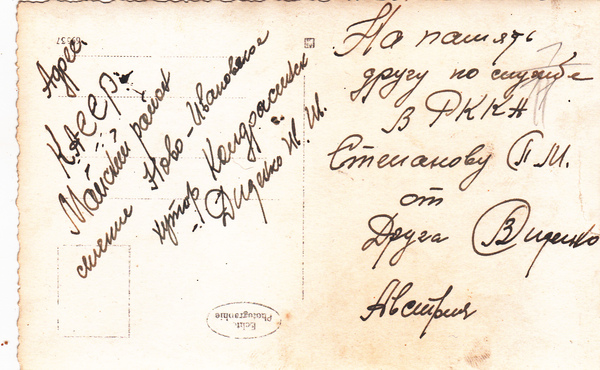 Адрес
КАССР.
Майский район
селение Ново-Ивановское
хутор Кондрасюки
Диденко И. И.
На память
другу по службе
в РККА
Степанову П М.
от
Друга Диденко
Австрия
Echt.
Photographie